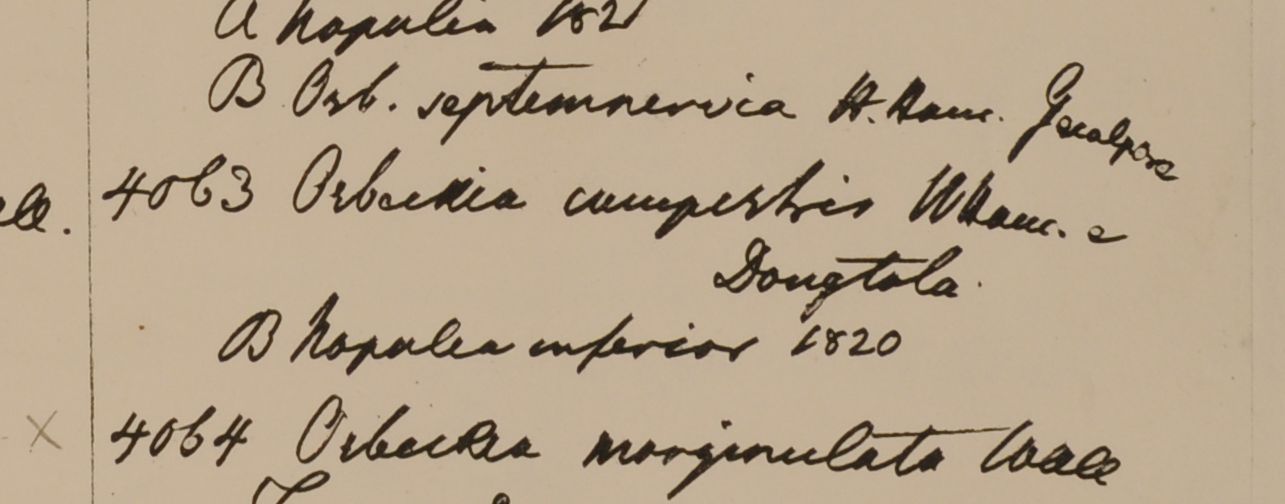 A Napalia 1821
B Osb. septemnervia H. Ham. Gualpara
ll. 4063 Osbeckia campestris HHam. e
Dongtola
B Napalea inferior 1820
x 4064 Osbeckia marginulata Wall